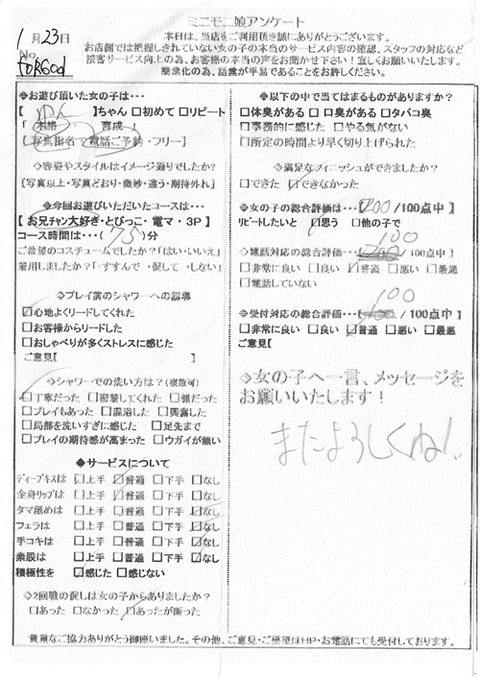 ミニモニ娘アンケート
1月23日
本日は、当店をご利用頂き誠にありがとうございます。
お店側では把握しきれていない女の子の本当のサービス内容の確認、スタッフの対応など
接客サービス向上の為、お客様の本当の声をお聞かせ下さい！宜しくお願いいたします。
簡素化の為、語彙が平易であることをお許しください。
No.
FORGOD
◆お遊び頂いた女の子は…
ちゃん □初めて □リピート
「 本格 育成 」
[ 写真指名 ・ 電話ご予約 ・フリー]
◇容姿やスタイルはイメージ通りでしたか？
[写真以上・写真どおり・微妙・違う・期待外れ]
◆今回お遊びいただいたコースは…
【 お兄チャン大好き・とびっこ・電マ・3P】
コース時間は…( 75 )分
ご希望のコスチュームでしたか？「はい・いいえ」
着用しましたか？「・すすんで ・促して ・しない」
◇プレイ前のシャワーへの誘導
☑心地よくリードしてくれた
□お客様からリードした
□おしゃべりが多くストレスに感じた
ご意見[ ]
◇シャワーでの洗い方は？(複数可)
☑丁寧だった □密着してくれた □雑だった
□プレイもあった □混浴した □興奮した
□局部を洗いすぎに感じた □足先まで
□プレイの期待感が高まった □ウガイが無い
◆サービスについて
ディープキスは □上手 ☑普通 □下手 □なし
全身リップは □上手 ☑普通 □下手 □なし
タマ舐めは □上手 □普通 □下手 ☑なし
フェラは □上手 □普通 □下手 ☑なし
手コキは □上手 □普通 □下手 ☑なし
素股は □上手 □普通 □下手 ☑なし
積極性を ☑感じた □感じない
◇2回戦の促しは女の子からありましたか？
□あった □なかった ☑あったが断った
◆以下の中で当てはまるものがありますか？
□体臭がある □口臭がある □タバコ臭
□事務的に感じた □やる気がない
□所定の時間より早く切り上げられた
◇満足なフィニッシュができましたか？
□できた ☑できなかった
◆女の子の総合評価は…[ 200 /100点中]
リピートしたいと ☑思う □他の子で
100
◇電話対応の総合評価…[ /100点中]
□非常に良い □良い ☑普通 □悪い □最悪
□電話していない
100
◆受付対応の総合評価…[ /100点中]
□非常に良い □良い ☑普通 □悪い □最悪
ご意見[
◇女の子へ一言、メッセージを
お願いいたします！
またよろしくね！
貴重なご協力ありがとう御座いました。その他、ご意見・ご要望はHP・お電話にても受付しております。